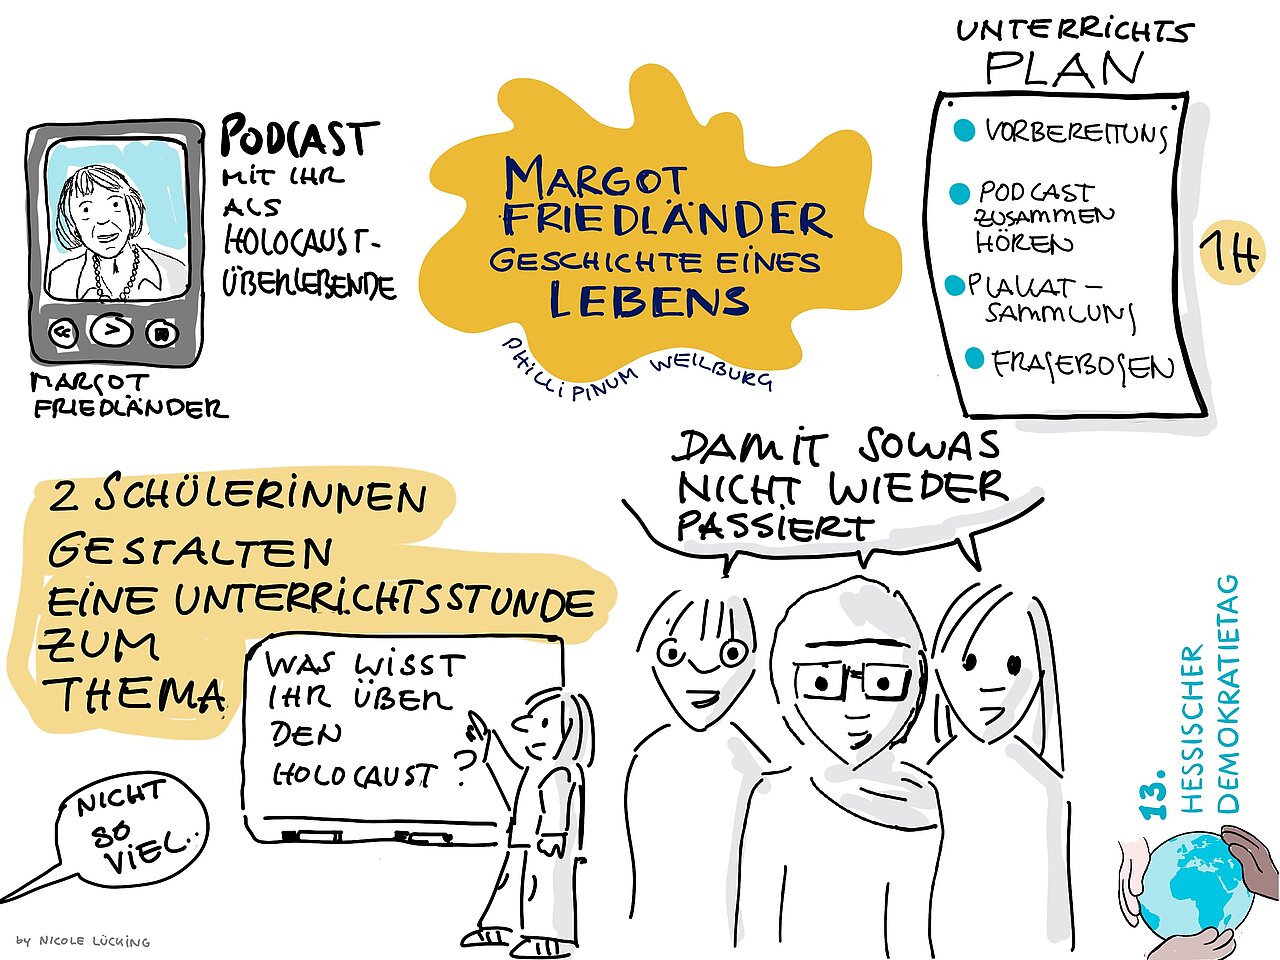 PODCAST
MIT IHR
ALS
HOLOCAUST-
ÜBERLEBENDE
MARGOT
FRIEDLÄNDER
MARGOT
FRIEDLÄNDER
GESCHICHTE EINES
LEBENS
PHILLIPINUM WEILBURG
UNTERRICHTS
PLAN
VORBEREITUNG
PODCAST
ZUSAMMEN
HÖREN
PLAKAT-
SAMMLUNG
FRAGEBOGEN
1H
2 SCHÜLERINNEN
GESTALTEN
EINE UNTERRICHTSSTUNDE
ZUM
THEMA
WAS WISST
IHR ÜBER
DEN
HOLOCAUST?
NICHT
SO
VIEL..
DAMIT SOWAS
NICHT WIEDER
PASSIERT
13.
HESSISCHER
DEMOKRATIETAG
by NICOLE LÜCKING